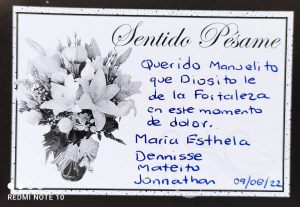 Sentido Pésame
Querido Manuelito
que Diosito le
de la Fortaleza
en este momento
de dolor.
Maria Esthela
Dennisse
Mateito
Jonnathan 09/08/22
REDMI NOTE 10